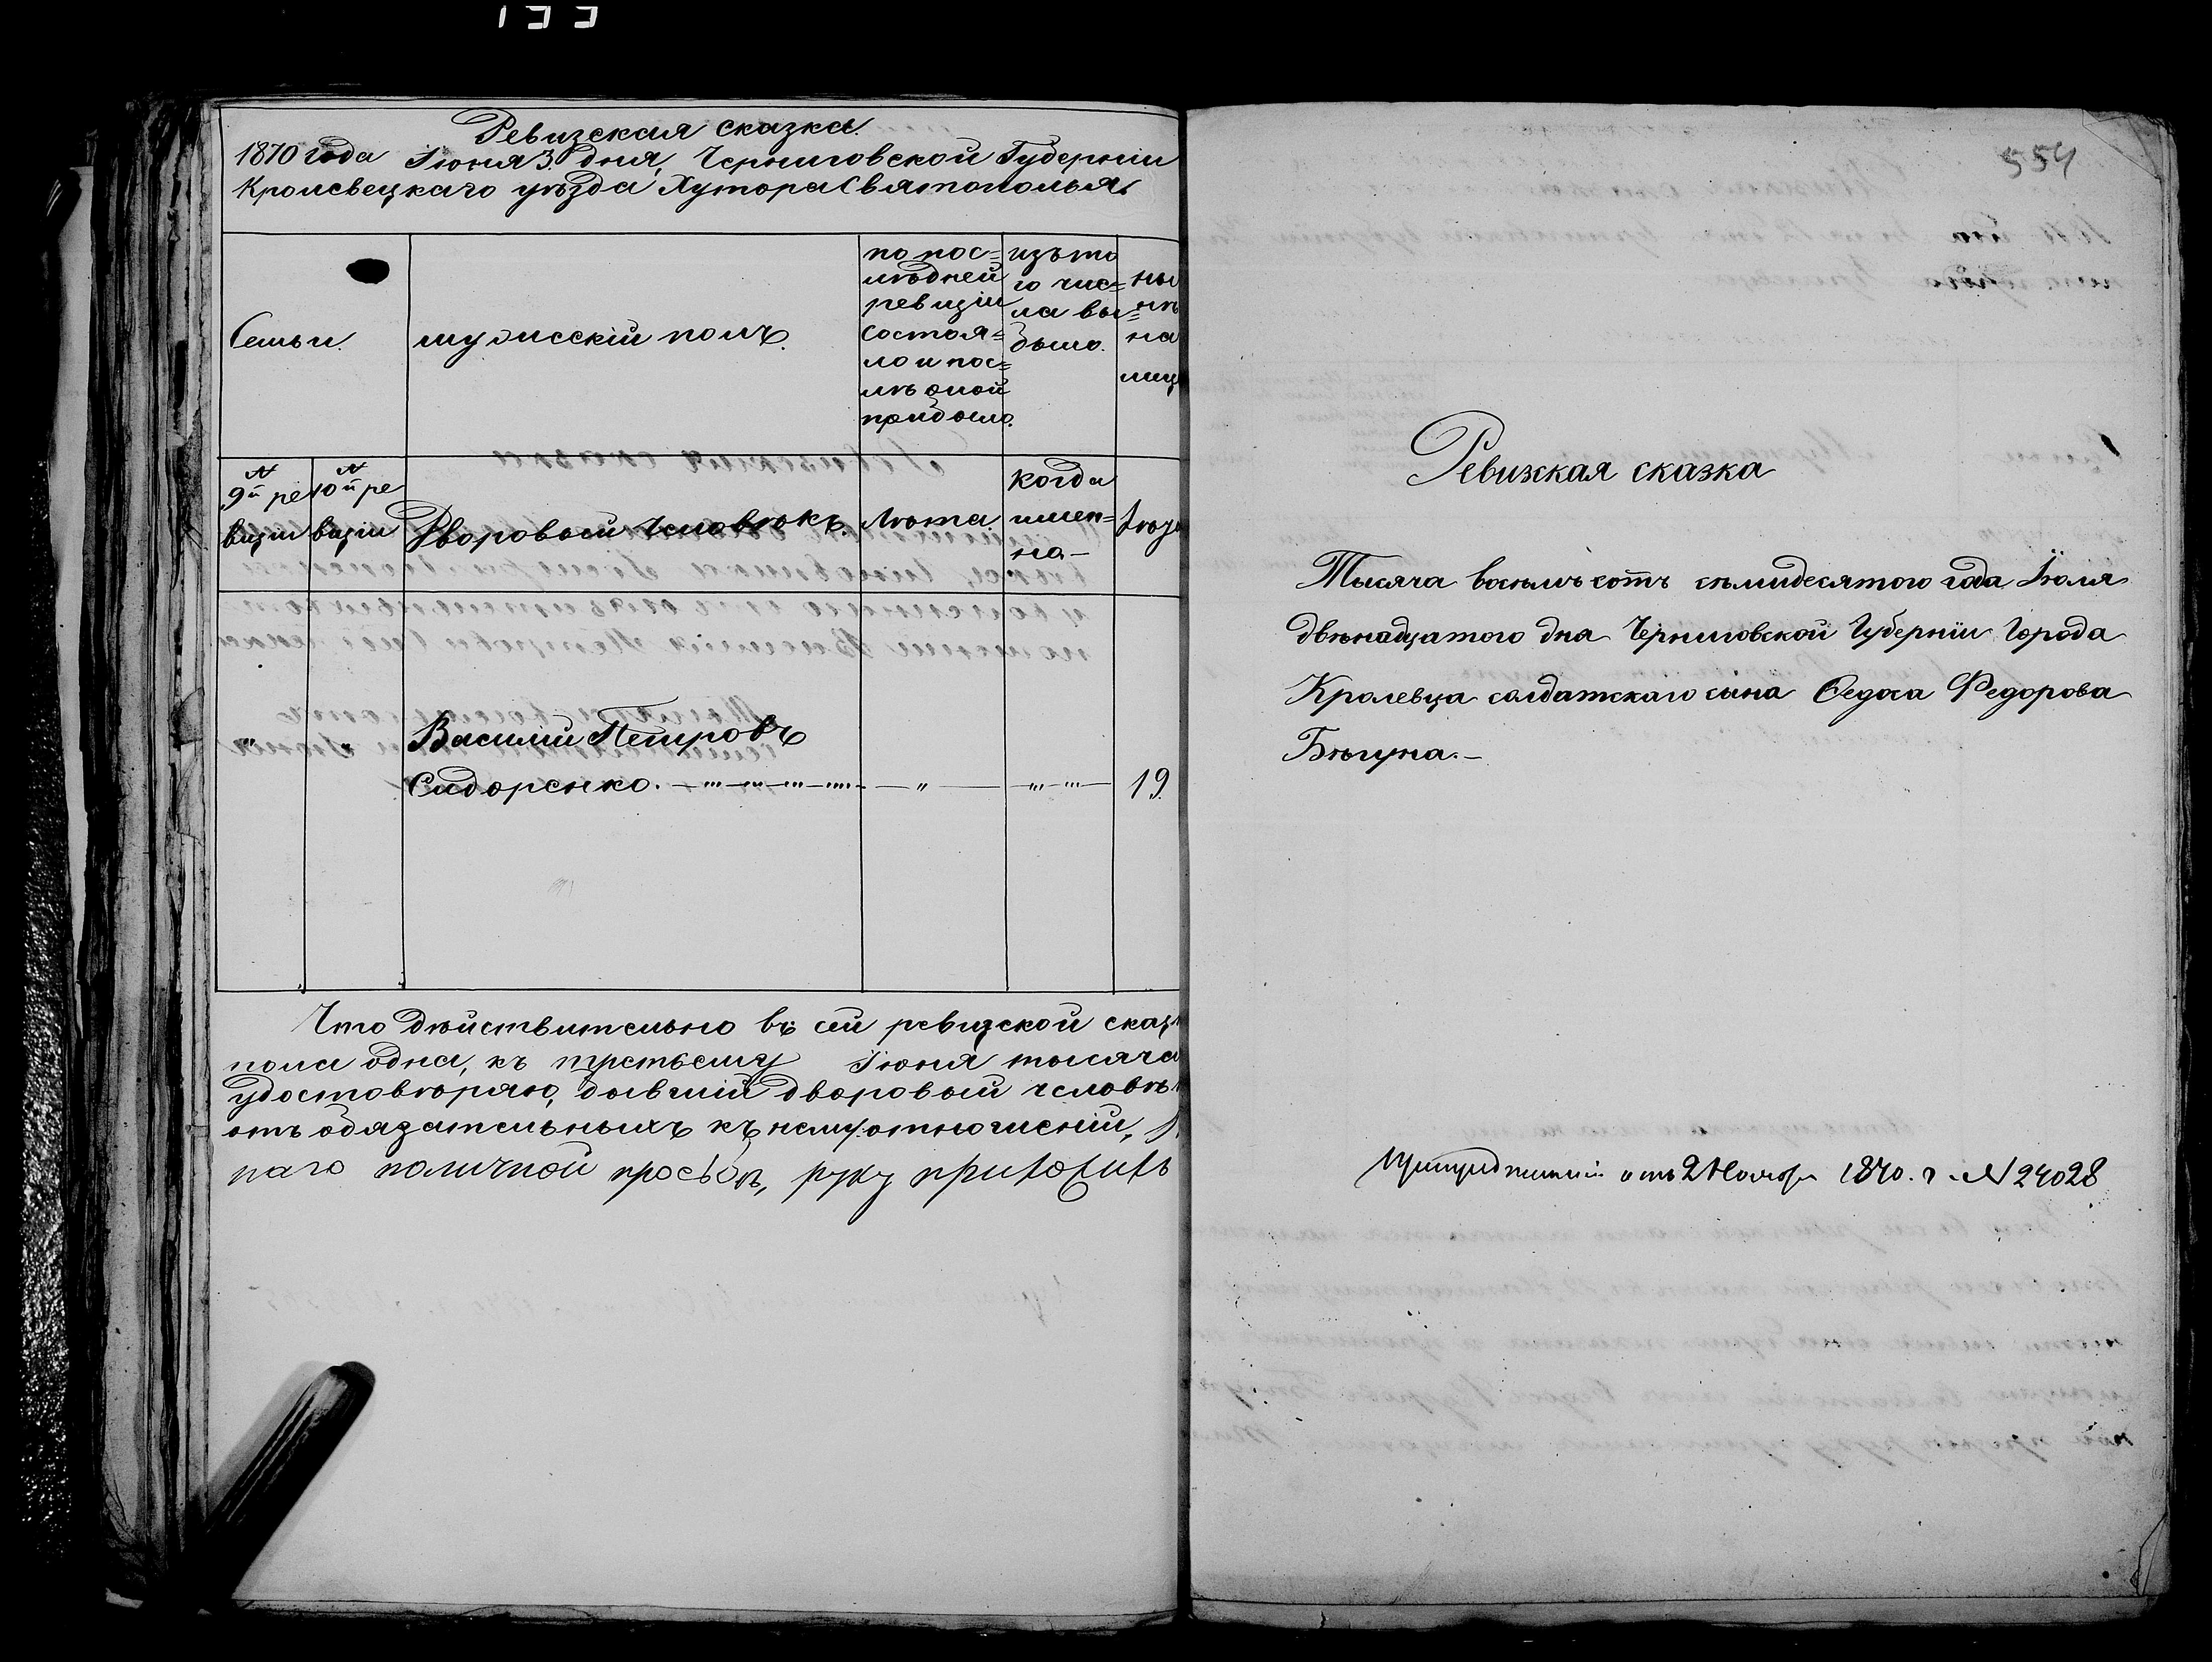 Ревизская сказка.
1870 года Іюня 3. дня, Черниговской Губерніи
Кролевецкаго уѣзда Хутора Святополья
Семьи.
мужескій полъ.
по пос=
лѣдней
ревизіи
состоя=
ло и пос=
лѣ оной
прибыло.
изъ то
го чис=
ла вы=
было.
ны
нѣ
на
лиц
№
9й ре
визіи
№
10й ре
визіи
Дворовый человѣкъ.
Лѣта.
когда
имен=
но —
Лѣта
" "
Василій Петровъ
Сидоренко. — " — " — " 19.
Что дѣйствительно въ сей ревизской сказ
пола одна, къ третьему Іюня тысяча
удостовѣряю, бывшій дворовый человѣ
отъ обязательныхъ къ нему отношеній,
наго по личной просьбѣ, руку приложилъ
554
Ревизкая сказка
Тысяча восемь сотъ семидесятого года Іюля
двѣнадцатого дня Черниговской Губерніи Города
Кролевца солдатскаго сына Федоса Федорова
Бѣгуна. —
отъ 2 Ноября 1870. г. № 24028